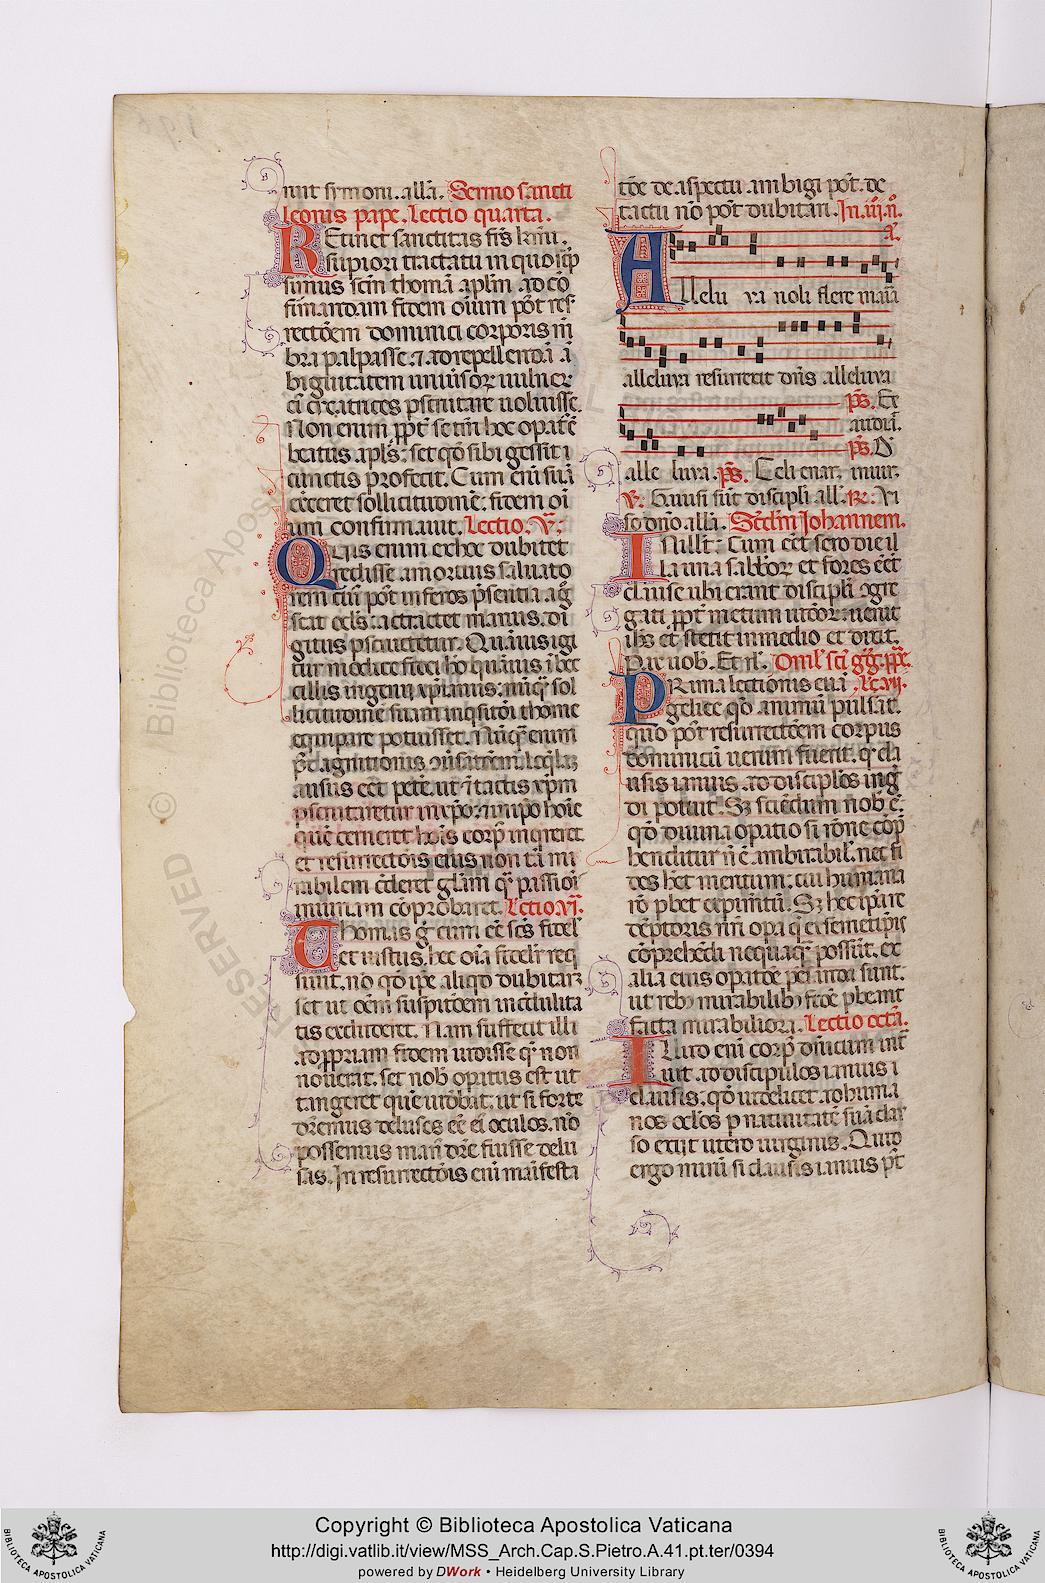 uit symoni. alla. Sermo sancti
leonis pape. Lectio quarta.
Retinet sanctitas frs kmi.
supiori tractatu in quo
simus scm thoma aplm. ad co
firmandam fidem oium pot res
rectoem dominici corporis m
bra palpasse. 7 ad repellenda a
biguitatem
ci cicatrices pscrutare uoluisse.
Non enim ppt se tm hoc
beatus apls: set qd sibi gessit i
cunctis profecit. Cum eni sua
cerceret sollicitudine. fidem oi
um confirmauit. Lectio. v.
Quis enim ex hoc dubitet
redisse a mortuis saluato
rem cui pot inferos psentia ag
scat ocls. attractet manus. di
gitus pscrutetur. Quauis igi
tur
cillis ingenii nuqd sol
licitudine suam inqsitoi thome
equipare potuisset. Nuqd enim
p dagnitionis
ausus eet pete. ut 7 tactis xpm
pscrutaretur in xpo. 7 in ipo hoie
que cerneret hois corp inqreret
et resurrectois eius non ta mi
rabilem cderet glam qr passioi
iniuriam coprobaret. Lectio. vi.
Thomas g cum ee scs fidel
et iustus. hec oia fideliter req
siuit. no qd ipe aliqd dubitarz
set ut oem suspitoem incdulita
tis excluderet. Nam suffecit illi
ad ppriam fidem uidisse qr non
nouerat. set nob opatus est ut
tangeret que uidebat. ut si forte
dicemus delusos ee ei oculos. no
possemus man dice fuisse delu
sas. In resurrectois eni manifesta
toe de aspectu ambigi pot. de
tactu no pot dubitari. In. iii. n. a.
Allelu ya noli flere maria
alleluya resurrexit dns alleluya
ps. Ex
audia.
ps. D
alle luya. ps. Celi enar. iniur.
v. Gauisi sut discipli all. R. Vi
so dno. alla. Scdm Johannem.
In illt. Cum eet sero die il
la una sabbor. et fores eet
clause ubi erant discipli 9gre
gati. ppt metum iudeor: uenit
ihs et stetit in medio et dixit.
Pax uob. Et rl. Omil sci gg. pp.
Prima lectionis eua Lc. vii.
gelice qo animu pulsat.
quo pot resurrectoem corpus
dominicu uerum fuerit. qd cla
usis ianuis. ad disciplos ing
di potuit. Sz sciedum nob e.
qd diuina opatio si rone cop
henditur n e ambirabil. nec fi
des het meritum. cui humana
ro pbet expimtu. Sz hec ipa re
deptoris nri opa q ex semetipis
coprehedi nequaqr possut. ex
alia eius opatoe pesanda sunt.
ut reb mirabilib fide pbeant
facta mirabiliora. Lectio octa.
Illud eni corp dnicum int
uit ad discipulos ianuis
clausis. qd uidelicet ad huma
nos oclos p natiuitate sua clau
so exiit utero uirginis. Quid
ergo miru si clausis ianuis pt
RESERVED © Biblioteca Apostolica
Copyright © Biblioteca Apostolica Vaticana
http://digi.vatlib.it/view/MSS_Arch.Cap.S.Pietro.A.41.pt.ter/0394
powered by DWork • Heidelberg University Library
BIBLIOTECA APOSTOLICA VATICANA
BIBLIOTECA APOSTOLICA VATICANA